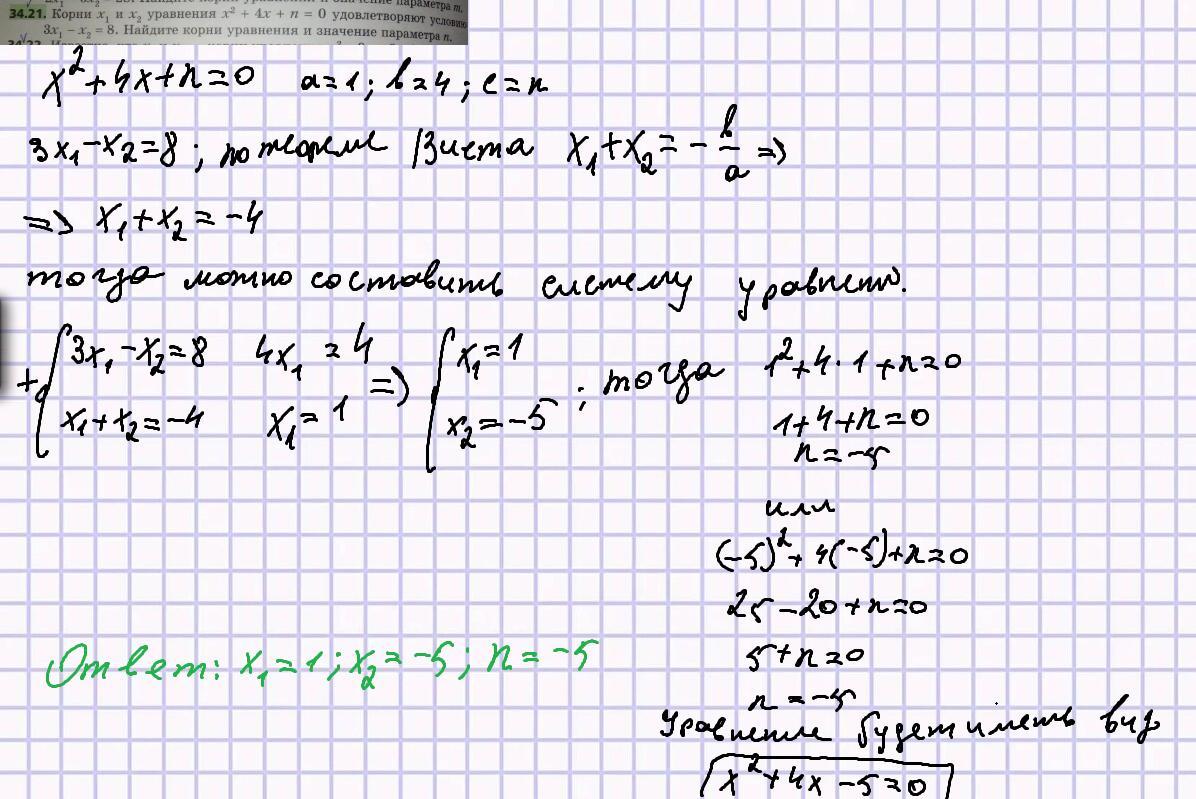 34.21. Корни x₁ и x₂ уравнения x² + 4x + n = 0 удовлетворяют условию
3x₁ – x₂ = 8. Найдите корни уравнения и значение параметра n.
x²+4x+n=0 a=1; b=4; c=n
3x₁-x₂=8; по теореме Виета x₁+x₂=-b/a =>
=> x₁+x₂=-4
тогда можно составить систему уравнений.
+{3x₁-x₂=8 4x₁=4
x₁+x₂=-4 x₁=1
=> {x₁=1
x₂=-5
; тогда 1²+4·1+n=0
1+4+n=0
n=-5
или
(-5)²+4(-5)+n=0
25-20+n=0
5+n=0
n=-5
Уравнение будет иметь вид
x²+4x-5=0
Ответ: x₁=1; x₂=-5; n=-5